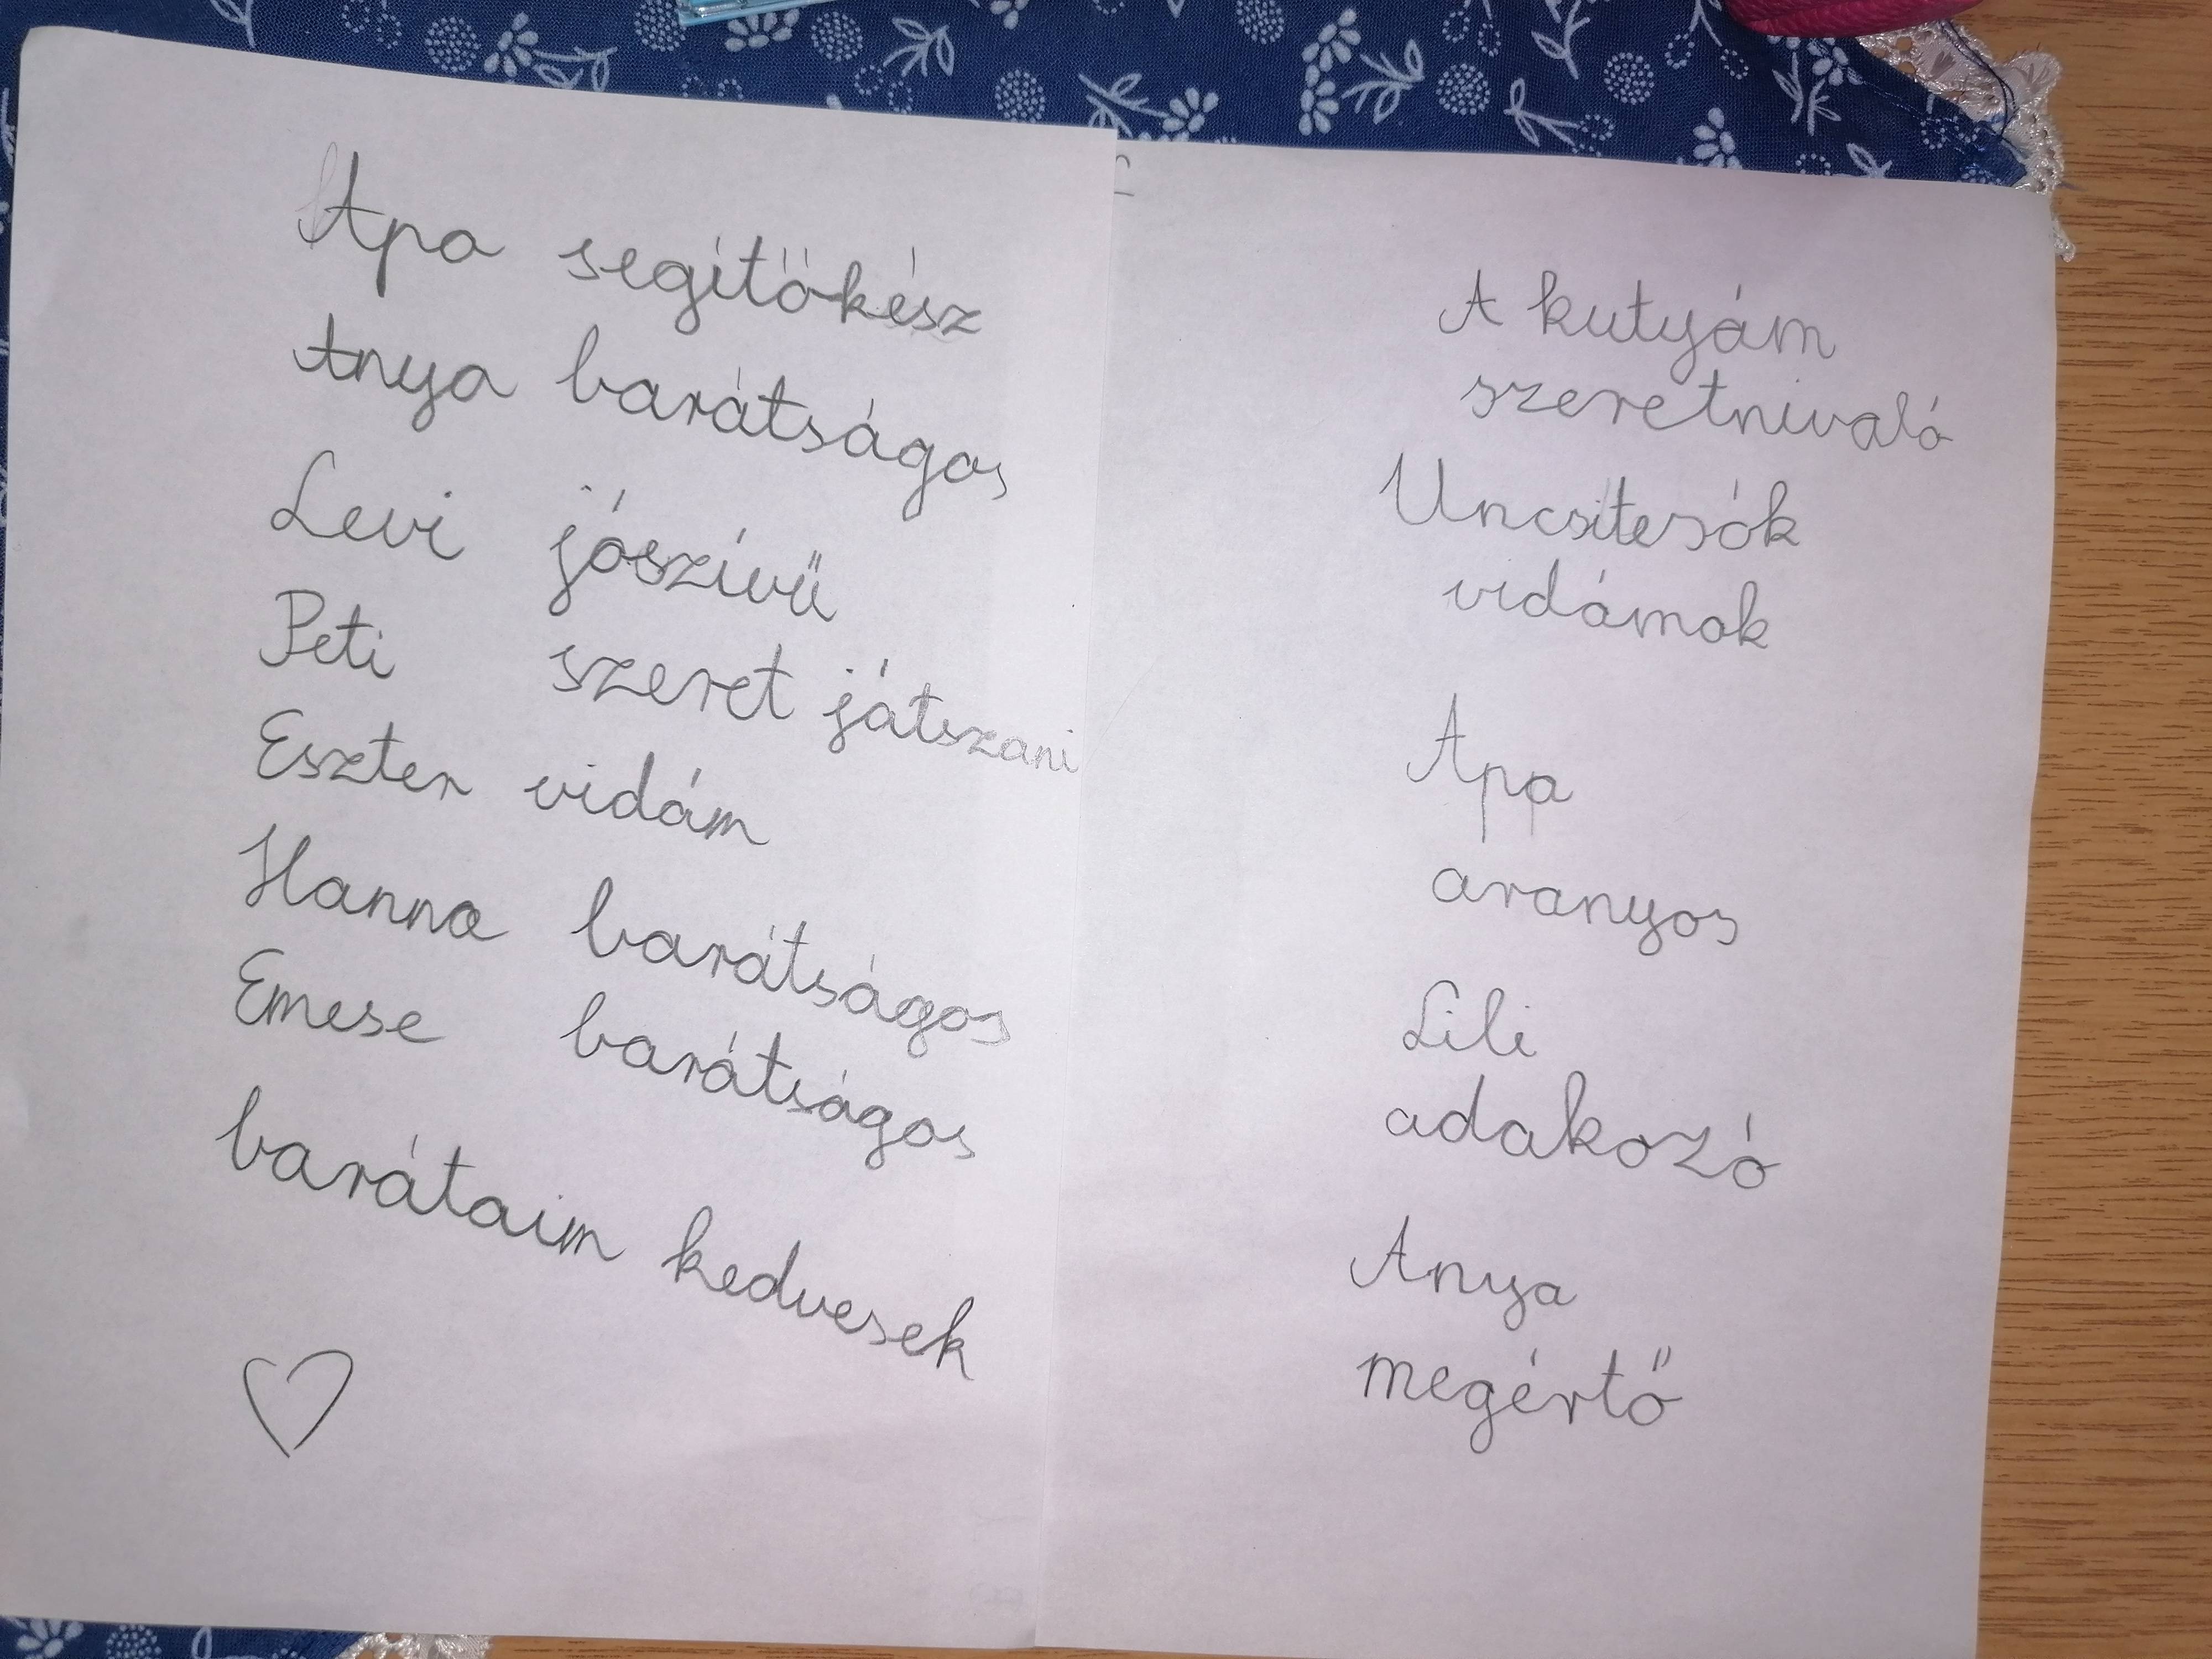 Apa segítőkész
Anya barátságos
Levi jószívű
Peti szeret játszani
Eszter vidám
Hanna barátságos
Emese barátságos
barátaim kedvesek
A kutyám
szeretnivaló
Uncsitesók
vidámak
Apa
aranyos
Lili
adakozó
Anya
megértő